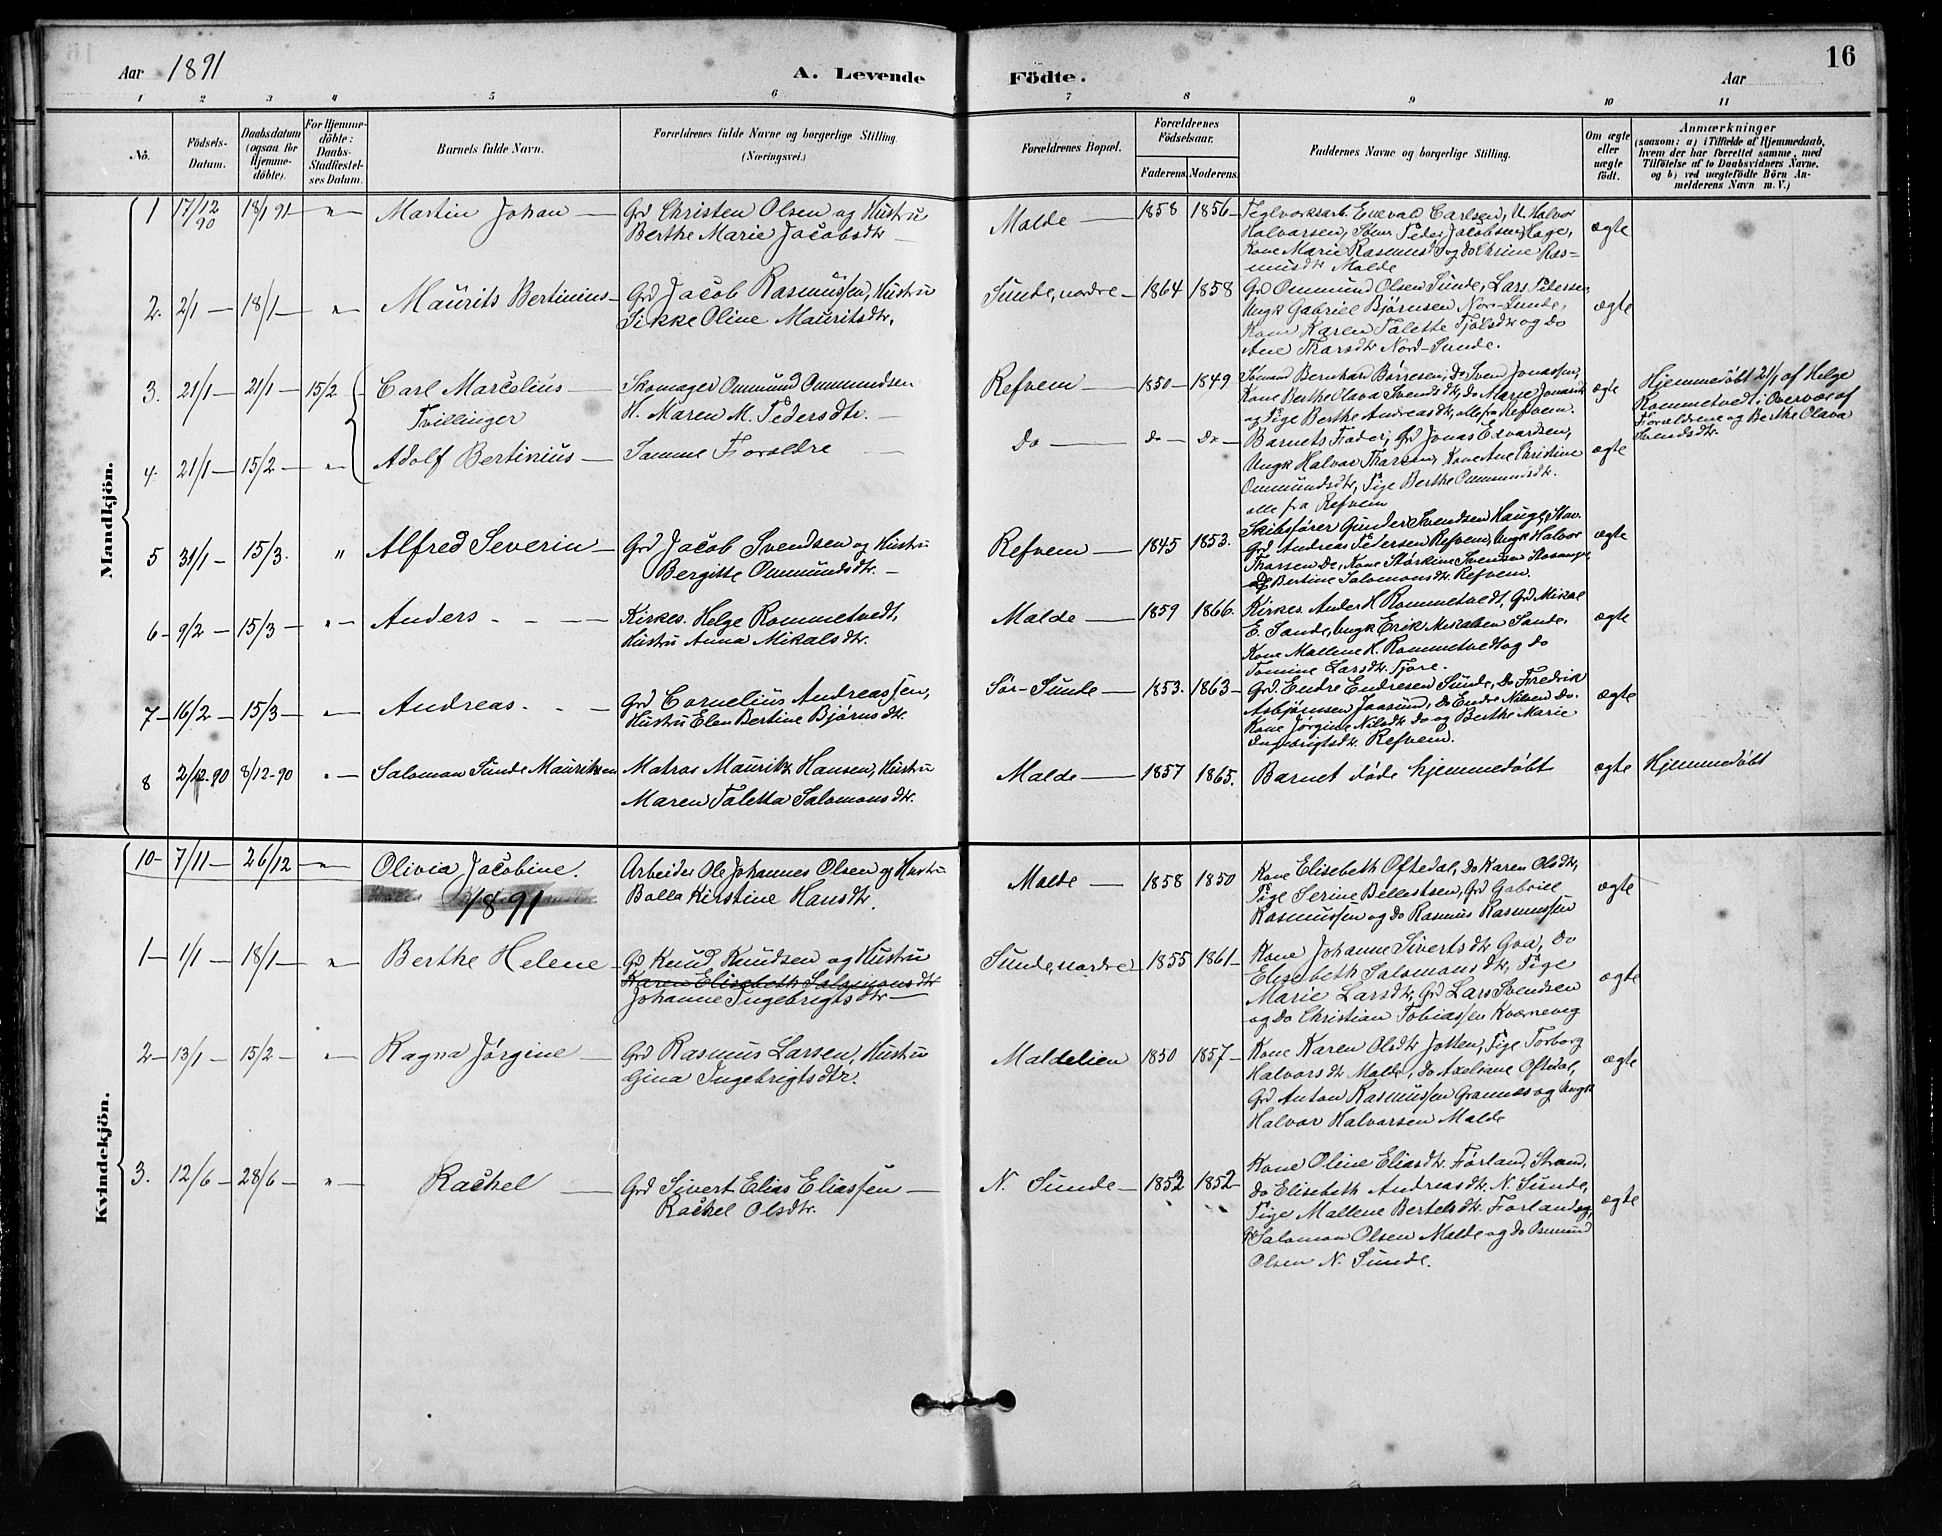 Aar 1891
A. Levende
Födte.
Aar
16
1 2 3 4 5 6 7 8 9 10 11
No.
Födsels-Datum.
Daabsdatum (ogsaa för Hjemme-döbte).
For Hjemme-döbte: Daabs-Stadfæstel-ses Datum.
Barnets fulde Navn.
Forældrenes fulde Navne og borgerlige Stilling. (Næringsvei.)
Forældrenes Bopæl.
Forældrenes Födselsaar.
Faderens. Moderens.
Faddernes Navne og borgerlige Stilling.
Om ægte eller uægte födt.
Anmærkninger
(saasom: a) i Tilfælde af Hjemmedaab,
hvem der har forrettet samme, med
Tilföielse af to Daabsvidners Navne.
og b) ved uægtefödte Börn An-
melderens Navn m. V.)
Mandkjön.
1 17/12 90 18/1 91 " Martin Johan Grd Christen Olsen og Hustru
Berthe Marie Jacobsdtr
Malde 1858 1856 Teglværksarb. Enevald Carlsen, U. Halvor
Halvarsen, Søm. Peder Jacobsen Hage,
Kone Marie Rasmusdtr og do Chrine Ras=
musdtr Malde
ægte
2. 2/1 18/1 " Maurits Bertinius Grd Jacob Rasmussen, Hustru
Sikke Oline Mauritsdtr.
Sunde, nordre 1864 1858 Grd Ommund Olsen Sunde, Lars Pedersen
Ungk Gabriel Bjørnsen Nor-Sunde,
Kone Karen Talette Tjølsdtr og do
Ane Tharsdtr Nord-Sunde.
ægte
3. 21/1 21/1 15/2 Carl Marcelius Skomager Ommund Ommundsen
Tvillinger H. Maren M. Pedersdtr.
Refvem 1850 1849 Sømand Bernhard Børresen, do Sven Jonassen,
Kone Berthe Olava Svendsdtr, do Marie Jonasdtr
og Pige Berthe Andreasdtr, alle fra Refvem.
ægte
Hjemmedøbt 21/1 af Helge
Rommetvedt i Overvær af
Forældrene og Berthe Olava
Svendsdtr.
4. 21/1 15/2 " Adolf Bertinius Samme Forældre
Do do do Barnets Fader, Grd Jonas Edvardsen,
Ungk Halvor Tharsen, Kone Ane Christine
Ommundsdtr, Pige Berthe Ommundsdtr.
alle fra Refvem
ægte
5 31/1 15/3. " Alfred Severin Grd Jacob Svendsen og Hustru
Bergitte Ommundsdtr.
Refvem 1845 1853. Skibsfører Gunder Svendsen Hauge, Stav.
Grd Andreas Pedersen Refvem, Ungk Halvor
Tharsen do, Kone Størkine Svendsen Stavanger
og Bertine Salomonsdtr. Refvem.
ægte
6 9/2 15/3 " Anders Kirkes. Helge Rommetvedt,
Hustru Anna Mikalsdtr.
Malde 1859 1866. Kirkes. Anders H Rommetvedt, Grd Mikal
E. Sande, Ungk Erik Mikalsen Sande,
Kone Mallene H. Rommetvedt og do
Tomine Larsdtr. Tjore.
ægte
7 16/2 15/3 " Andreas Grd Cornelius Andreassen,
Hustru Elen Bertine Bjørnsdtr.
Sør-Sunde 1853. 1863 Grd. Endre Endresen Sunde, do Fredrik
Asbjørnsen Jaasund, do Endre Nilsen do.
Kone Jørgine Nilsdtr do og Berthe Marie
Ingebrigtsdtr. Refvem.
ægte
8 2/12-90 8/12-90 " Salomon Sunde Mauritzen Matros Mauritz Hansen, Hustru
Maren Taletta Salomonsdtr.
Malde 1857 1865. Barnet døde hjemmedøbt ægte Hjemmedøbt
Kvindekjön.
10 7/11 26/12 " Olivia Jacobine. Arbeider Ole Johannes Olsen og Hustru
Bolla Kirstine Hansdtr.
Malde 1858 1850 Kone Elisebeth Oftedal, do Karen Olsdtr,
Pige Serine Bellestsen, Grd Gabriel
Rasmussen og do Rasmus Rasmussen
ægte
1891
1 1/1 18/1 " Berthe Helene Grd Knud Knudsen og Hustru
Karen Elisebeth Salomonsdtr
Johanne Ingebrigtsdtr
Sunde, nordre 1855 1861 Kone Johanne Sivertsdtr Goa, do
Elisebeth Salomonsdtr, Pige
Marie Larsdtr, Grd Lars Svendsen
og do Christian Tobiassen Kværnevig
ægte
2 13/1 15/2 " Ragna Jørgine Grd Rasmus Larsen, Hustru
Gina Ingebrigtsdtr.
Maldelien 1850 1857 Kone Karen Olsdtr Jotten, Pige Torborg
Halvorsdtr Malde, do Axeliane Oftedal,
Grd Anton Rasmussen Grannes og Ungk
Halvor Halvorsen Malde
ægte
3. 12/6 28/6 " Rachel Grd Sivert Elias Eliassen
Rachel Olsdtr.
N. Sunde 1852 1852 Kone Oline Eliasdtr. Førland, Strand,
do Elisebeth Andreasdtr. N. Sunde,
Pige Mallene Bertelsdtr. Førland og
Grd Salomon Olsen Malde og do Osmund
Olsen N. Sunde.
ægte